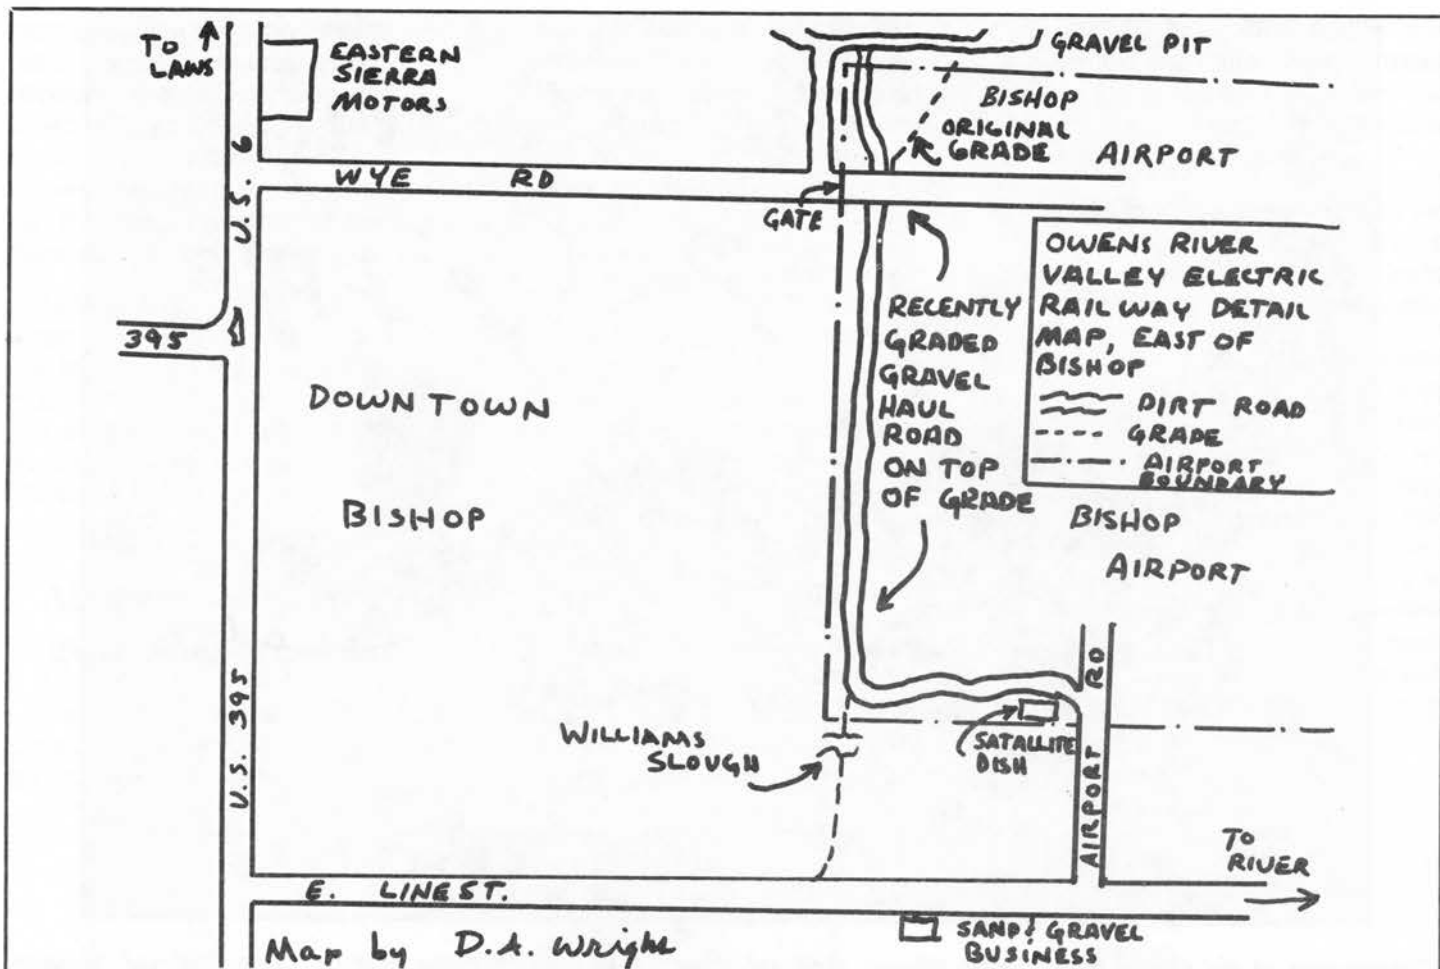 TO
LAWS
EASTERN
SIERRA
MOTORS
GRAVEL PIT
BISHOP
ORIGINAL
GRADE
AIRPORT
U.S. 6
WYE RD
GATE
OWENS RIVER
VALLEY ELECTRIC
RAILWAY DETAIL
MAP, EAST OF
BISHOP
DIRT ROAD
GRADE
AIRPORT
BOUNDARY
RECENTLY
GRADED
GRAVEL
HAUL
ROAD
ON TOP
OF GRADE
395
DOWNTOWN
BISHOP
BISHOP
AIRPORT
U.S. 395
WILLIAMS
SLOUGH
SATALLITE
DISH
AIRPORT RD
TO
RIVER
E. LINE ST.
SAND & GRAVEL
BUSINESS
Map by D.A. Wright